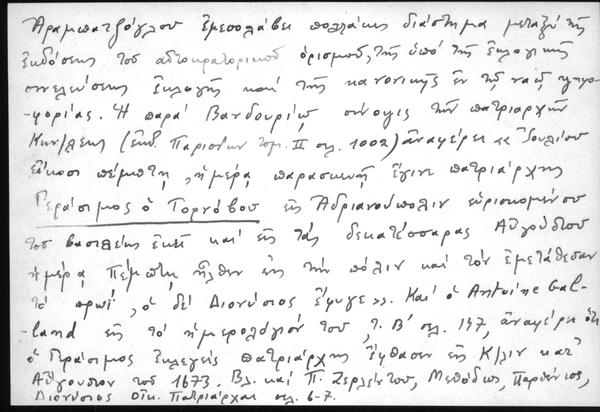 Ἀραμπατζόγλου ἐμεσολάβει πολλάκις διάστημα μεταξὺ τῆς
ἐκδόσεως τοῦ αὐτοκρατορικοῦ ὁρισμοῦ, τῆς ὑπό τῆς ἐκλογικῆς
συνελεύσεως ἐκλογῆς καί τῆς κανονικῆς ἐν τῷ ναῷ ψηφο-
-φορίας. Ἡ παρά Βανδουρίῳ σύνοψις τῶν πατριαρχῶν
Κων/λεως (ἐκδ. Παρισίων τομ. II σελ. 1002) ἀναφέρει «Ἰουλίου
εἴκοσι πέμπτῃ, ἡμέρᾳ παρασκευῇ ἔγινε πατριάρχης
Γεράσιμος ὁ Τορνόβου εἰς Ἀδριανούπολιν εὑρισκομένου
τοῦ βασιλέως ἐκεῖ καί εἰς τάς δεκατέσσαρας Αὐγούστου
ἡμέρᾳ Πέμπτῃ ἦλθεν εἰς τήν πόλιν καί τόν ἐμετάθεσαν
τό πρωΐ, ὁ δέ Διονύσιος ἔφυγε». Καί ὁ Antoine Gal-
land εἰς τό ἡμερολόγιόν του, τ. Β' σελ. 147, ἀναφέρει ὅτι
ὁ Γεράσιμος ἐκλεγείς πατριάρχης ἔφθασεν εἰς Κ/λιν κατ'
Αὔγουστον τοῦ 1673. Βλ. καί Π. Ζερλέντου, Μεθόδιος, Παρθένιος,
Διονύσιος Οἰκ. Πατριάρχαι σελ. 6-7.